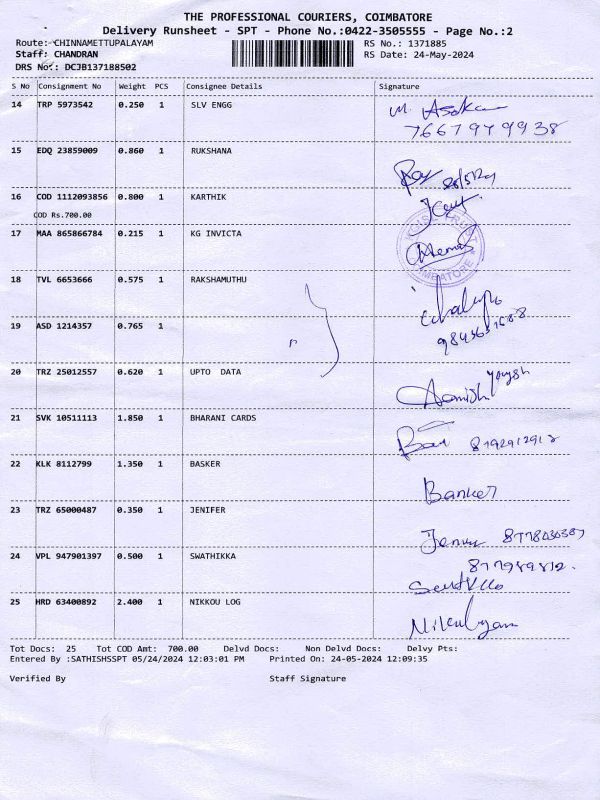 THE PROFESSIONAL COURIERS, COIMBATORE
Delivery Runsheet - SPT - Phone No.:0422-3505555 - Page No.:2
Route: CHINNAMETTUPALAYAM
RS No.: 1371885
Staff: CHANDRAN
RS Date: 24-May-2024
DRS No: DCJB137188502
S No Consignment No Weight PCS Consignee Details Signature
14 TRP 5973542 0.250 1 SLV ENGG
15 EDQ 23859009 0.860 1 RUKSHANA
16 COD 1112093856 0.800 1 KARTHIK
COD Rs.700.00
17 MAA 865866784 0.215 1 KG INVICTA
18 TVL 6653666 0.575 1 RAKSHAMUTHU
19 ASD 1214357 0.765 1
20 TRZ 25012557 0.620 1 UPTO DATA
21 SVK 10511113 1.850 1 BHARANI CARDS
22 KLK 8112799 1.350 1 BASKER
Banker
23 TRZ 65000487 0.350 1 JENIFER
24 VPL 947901397 0.500 1 SWATHIKKA
25 HRD 63400892 2.400 1 NIKKOU LOG
Tot Docs: 25 Tot COD Amt: 700.00 Delvd Docs: Non Delvd Docs: Delvy Pts:
Entered By :SATHISHSSPT 05/24/2024 12:03:01 PM Printed On: 24-05-2024 12:09:35
Verified By Staff Signature